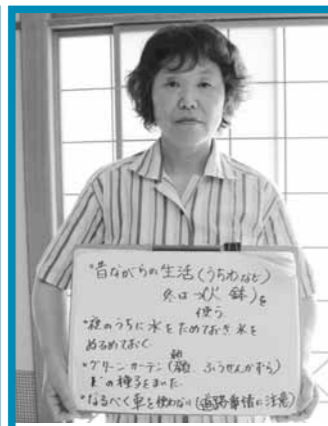 ・昔ながらの生活(うちわなど)
冬は火鉢)を
使う。
・夜のうちに水をためておき水を
ぬるめておく
・グリーンカーテン( ふうせんかずら)
の種子をまいた。
・なるべく車を使わない(道路事情に注意)